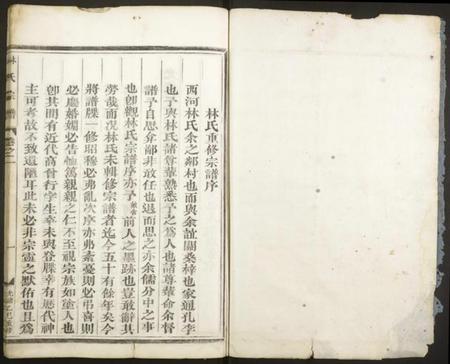 林氏重修宗譜序
西河林氏余之鄰村也而與余誼關桑梓也家通孔李
也予與林氏諸尊輩熟悉予之為人也諸尊輩命余督
譜予自思弇鄙非敢任也退而思之亦余儒分中之事
也卽觀林氏宗譜序亦予 前人之墨跡也豈敢辭其
勞哉而况林氏未輯修宗譜者迄今五十有餘年矣今
將譜牒一修昭穆必弗亂次序亦弗紊憂則必弔喜則
必慶婚媾必告恤寡親親之仁不至視宗族如塗人也
卽其間有近代高曾行字生卒未與登牒幸有歷代神
主可考故不致遺陋耳此未必非宗靈之默佑也且為
林氏宗譜
卷之一
一